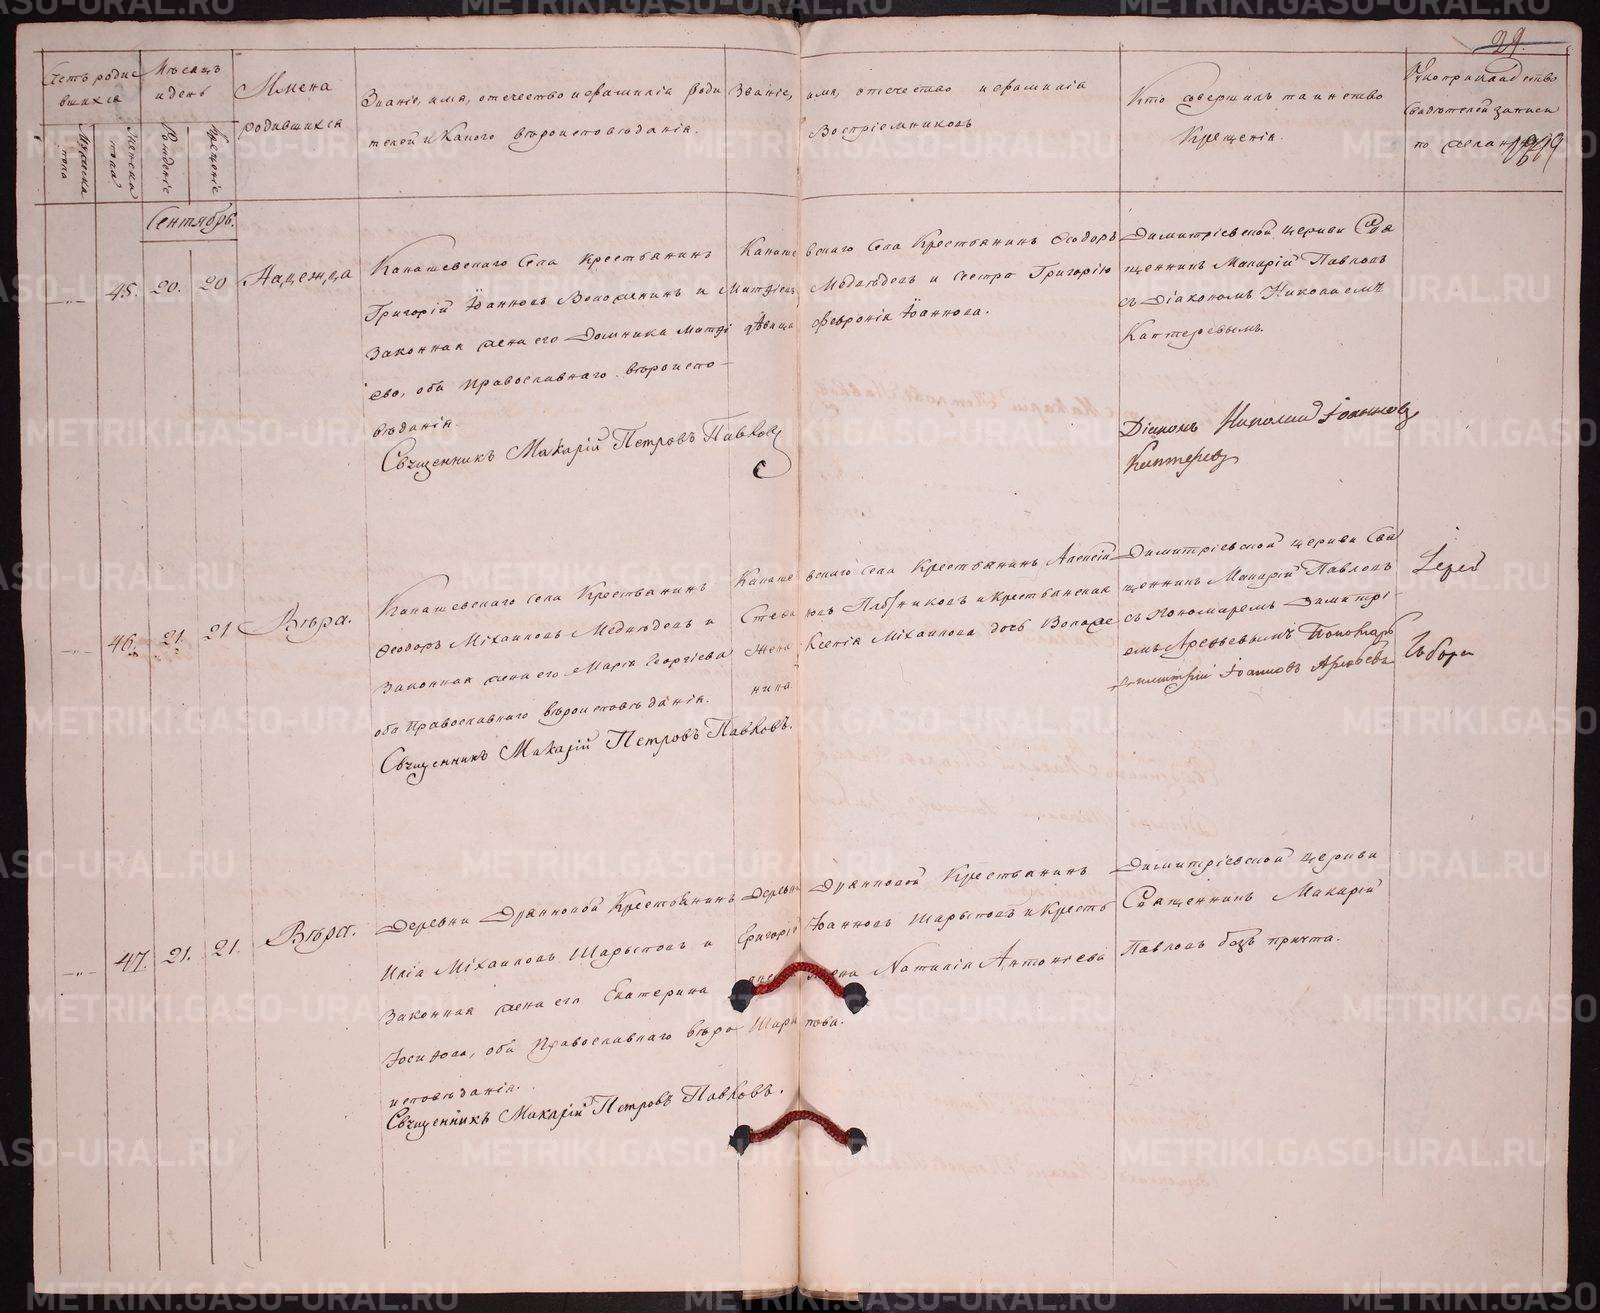 29.
Счетъ роди-
вшихся
Мужеска
пола
Женска
пола
Мѣсяцъ
и день
Рожденіе
Крещеніе
Имена
родившихся
Званіе, имя, отечество и фамилія роди-
телей и какого вѣроисповѣданія.
Званіе, имя, отечество и фамилія
Воспріемниковъ
Кто совершилъ таинство
Крещенія.
Рукоприкладство
свидѣтелей записи
по желанію
Сентябрь.
45. 20. 20 Надежда
Канашевскаго Села крестьянинъ
Григорій Іоанновъ Воложенинъ и
Законная жена его Домника Матѳі
ева, оба Православнаго вѣроиспо-
вѣданія.
Священникъ Макарій Петровъ Павловъ
Канашевскаго Села Крестьянинъ Ѳеодоръ
Матѳіевъ Медвѣдевъ и Сестра Григорію
дѣвица Февронія Іоаннова.
Димитріевской церкви Свя
щенникъ Макарій Павловъ
съ Діакономъ Николаемъ
Каптеревымъ.
Діаконъ Николай Іоанновъ
Каптеревъ
46. 21. 21 Вѣра.
Канашевскаго Села Крестьянинъ
Ѳеодоръ Міхаиловъ Медвѣдевъ и
Законная жена его Марія Георгіева
оба Православнаго вѣроисповѣданія.
Священникъ Макарій Петровъ Павловъ.
Канашевскаго Села Крестьянинъ Алексій
и крестьянская
жена Ксенія Міхаилова дочь Воложе
нина.
Димитріевской церкви Свя
щенникъ Макарій Павловъ
съ Пономаремъ Димитрі-
емъ Арефьевымъ Пономарь
Димитрій Іоанновъ Арефьевъ
47. 21. 21. Вѣра.
Деревни Дрянновой Крестьянинъ
Илія Міхаиловъ Шарыповъ и
Законная жена его Екатерина
Іосифова, оба Православнаго вѣро-
исповѣданія.
Священникъ Макарій Петровъ Павловъ.
Деревни Дрянновой Крестьянинъ
Григорій Іоанновъ Шарыповъ и Кресть
жена Наталія Антоніева
Шарыпова.
Димитріевской церкви
Священникъ Макарій
Павловъ безъ причта.
METRIKI.GASO-URAL.RU